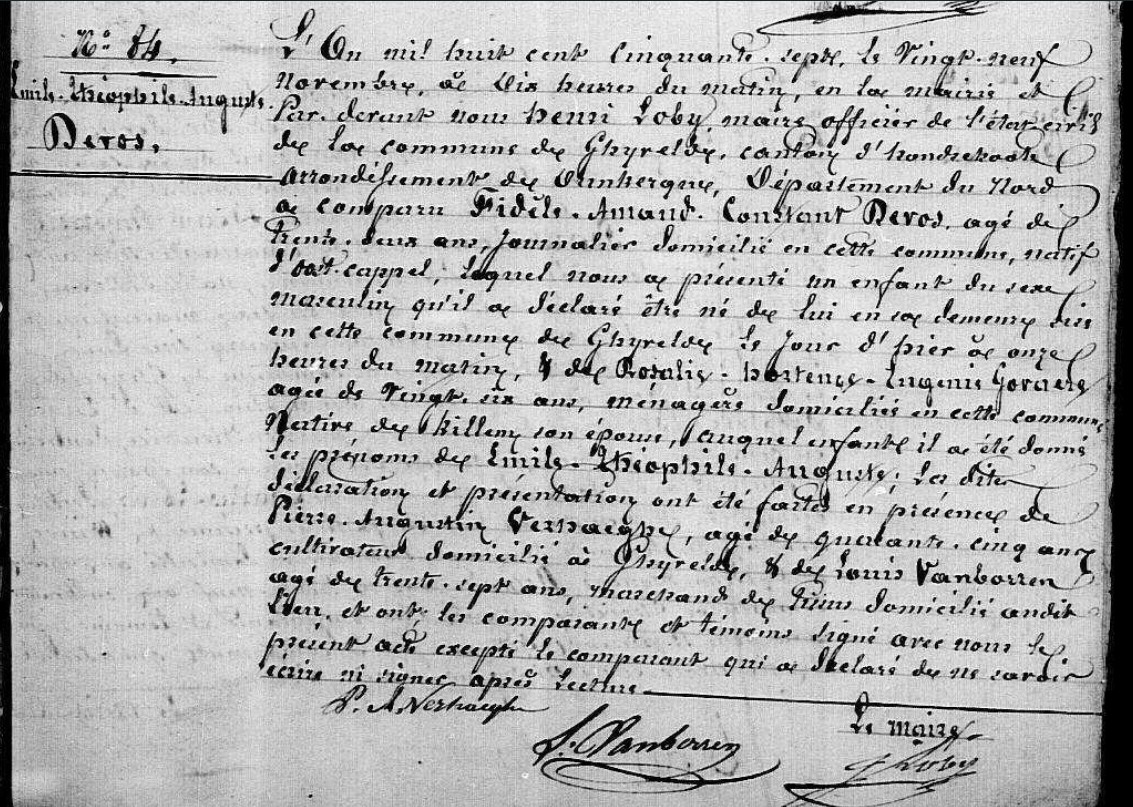 N° 84.
Emile-Théophile-Auguste.
Devos.
L'An mil huit cent Cinquante-sept, le Vingt-neuf
Novembre, à Dix heures du matin, en la mairie et
Par-devant nous henri Loby, maire officier de l'état civil
de la commune de Ghyvelde, canton d'hondschoote
arrondissement de Dunkerque, Département du Nord
a comparu Fidèle-Amand-Constant Devos, agé de
trente-deux ans, Journalier domicilié en cette commune, natif
d'ost-cappel, lequel nous a présenté un enfant du sexe
masculin qu'il a déclaré être né de lui en sa demeure sise
en cette commune de Ghyvelde le Jour d'hier à onze
heures du matin, & de Rosalie-hortence-Eugenie Govaere
agée de Vingt-six ans, ménagère domiciliée en cette commune
Native de Killem son épouse, auquel enfant il a été donné
les prénoms de Emile-Théophile-Auguste; Les dites
déclaration et présentation ont été faites en présence de
Pierre-Augustin Verhaeghe, agé de quarante-cinq ans
cultivateur domicilié à Ghyvelde, & de Louis Vanborren
agé de trente-sept ans, marchand de domicilié audit
Lieu, et ont, les comparants et témoins signé avec nous le
présent acte excepté le comparant qui a déclaré de ne savoir
écrire ni signer après Lecture.
P. A Verhaeghe
L. Vanborren
Le maire
Loby